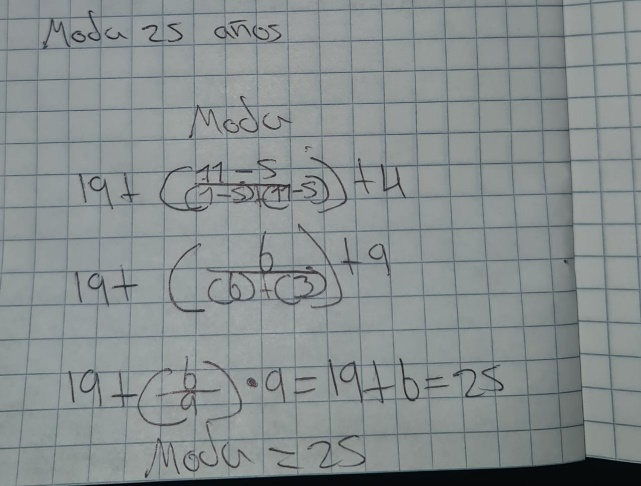 Moda 25 años
Moda
19 + (11 - 5 / (11-5)+(11-5)) + 4
19 + (6 / (6)+(3)) + 9
19 + (6/9) • 9 = 19 + 6 = 25
Moda = 25